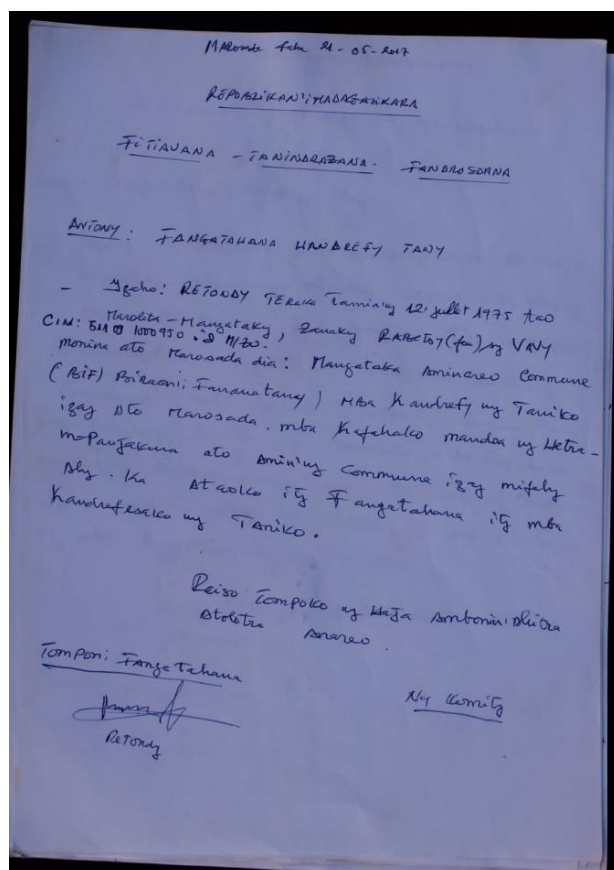 faha 21-05-2017
REPOBLIKAN'i MADAGASIKARA
FITIAVANA - TANINDRAZANA - FANDROSOANA
ANTONY: FANGATAHANA HANDREFY TANY
- Izaho: RETONDY TERAKA Tamin'ny 12 juillet 1975 tao
Marolita - Mangataky, Zanaky RABETSY (feu) sy VAVY
CIN:
monina ato Marosada dia: Mangataka Aminareo Commune
(BIF) Biraoni; Fananatany) Mba Handrefy ny Taniko
izay Ato Marosada. mba Hafahako mandoa ny Hetra-
mPanjakana ato Amin'ny Commune izay mifehy
Ahy. Ka Ataolko ity Fangatahana ity mba
Handrefesako ny Taniko.
Raiso Tompoko ny Haja Ambonin
Atolotra Anareo.
Tomponi Fangatahana
Ny Komity
Retondy